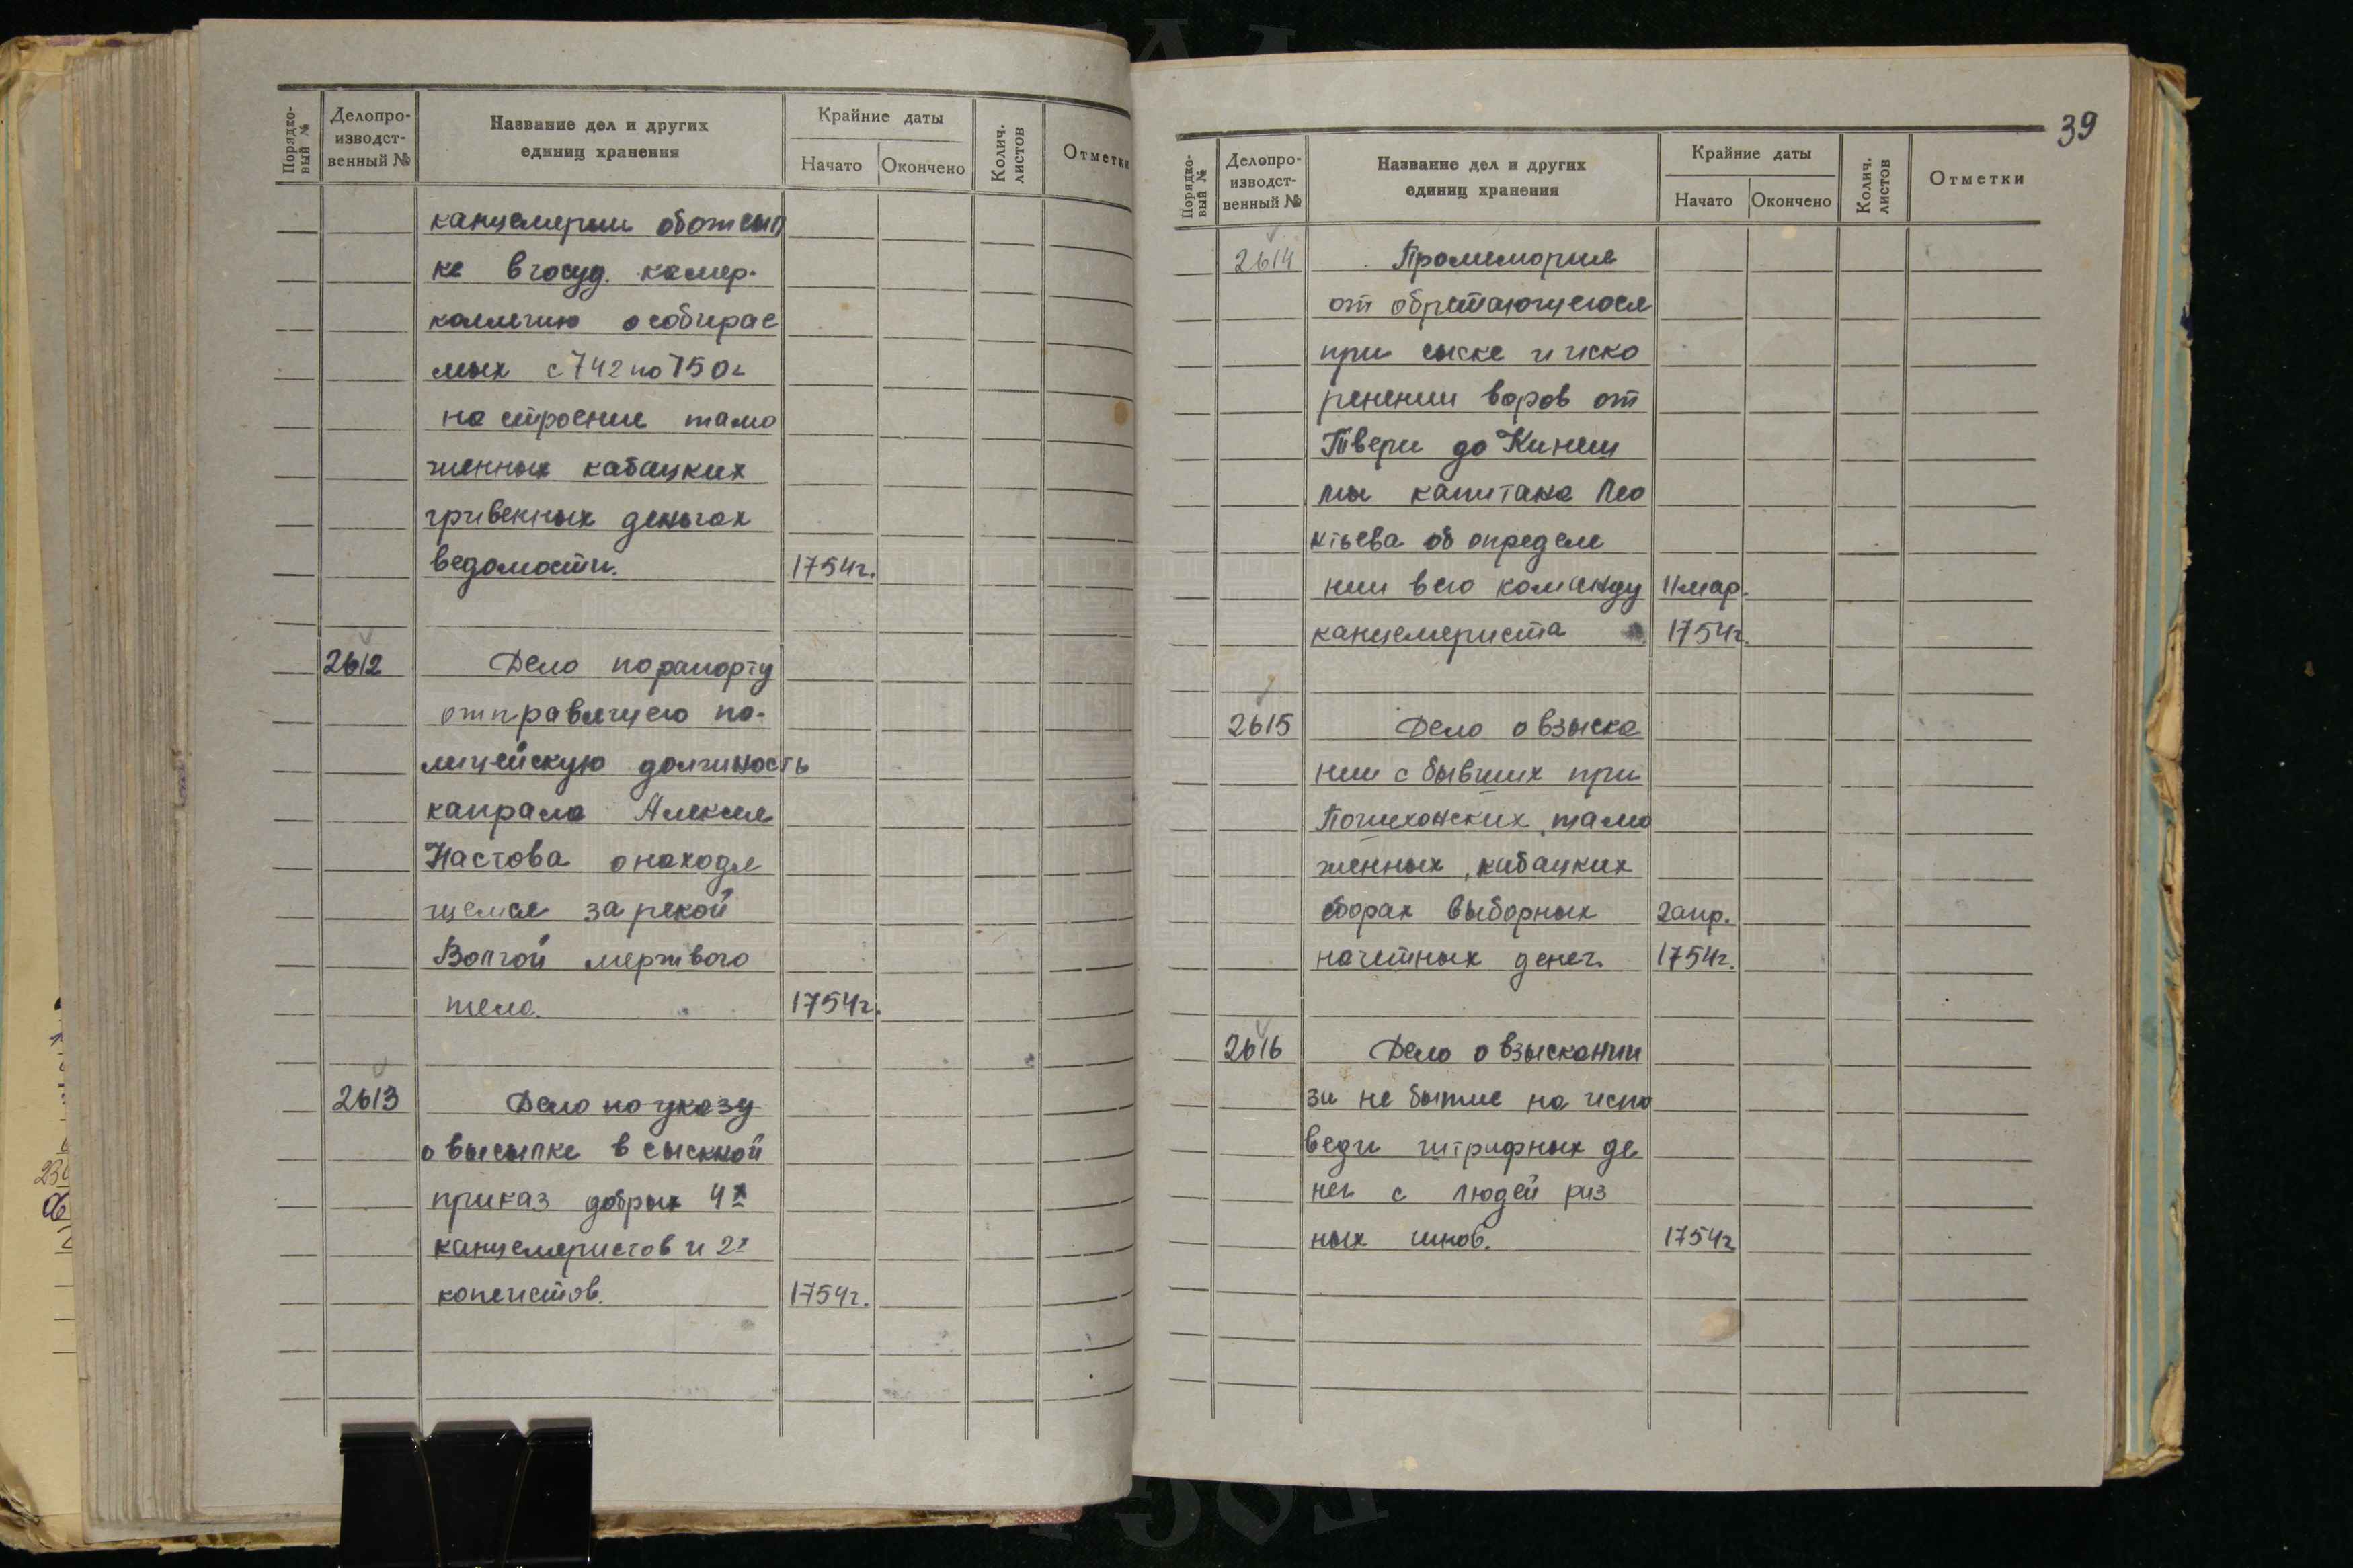 Порядко-
вый №
Делопро-
изводст-
венный №
Название дел и других
единиц хранения
Крайние даты
Начато
Окончено
Колич.
листов
Отметки
канцелярии об отсыл
ке в госуд. камер-
коллегию о собирае
мых с 742 по 750 г
на строение тамо
женных кабацких
гривенных деньгах
ведомости. 1754г.
2612 Дело по рапорту
отправлящего по-
лицейскую должность
капрала Алексея
Настова о находя
щемся за рекой
Волгой мертвого
тела. 1754г.
2613 Дело по указу
о высылке в сыскной
приказ добрых 4х
канцеляристов и 2х
копеистов. 1754г.
39
Порядко-
вый №
Делопро-
изводст-
венный №
Название дел и других
единиц хранения
Крайние даты
Начато
Окончено
Колич.
листов
Отметки
2614 Промемория
от обретающегося
при сыске и иско
ренении воров от
Твери до Кинеш
мы капитана Лео
нтьева об определе
нии в его команду 11 мар.
канцеляриста 1754г.
2615 Дело о взыска
нии с бывших при
Пошехонских тамо
женных, кабацких
сборах выборных 2 апр.
начетных денег. 1754г.
2616 Дело о взыскании
за не бытие на испо
веди штрафных де
нег с людей раз
ных чинов. 1754г